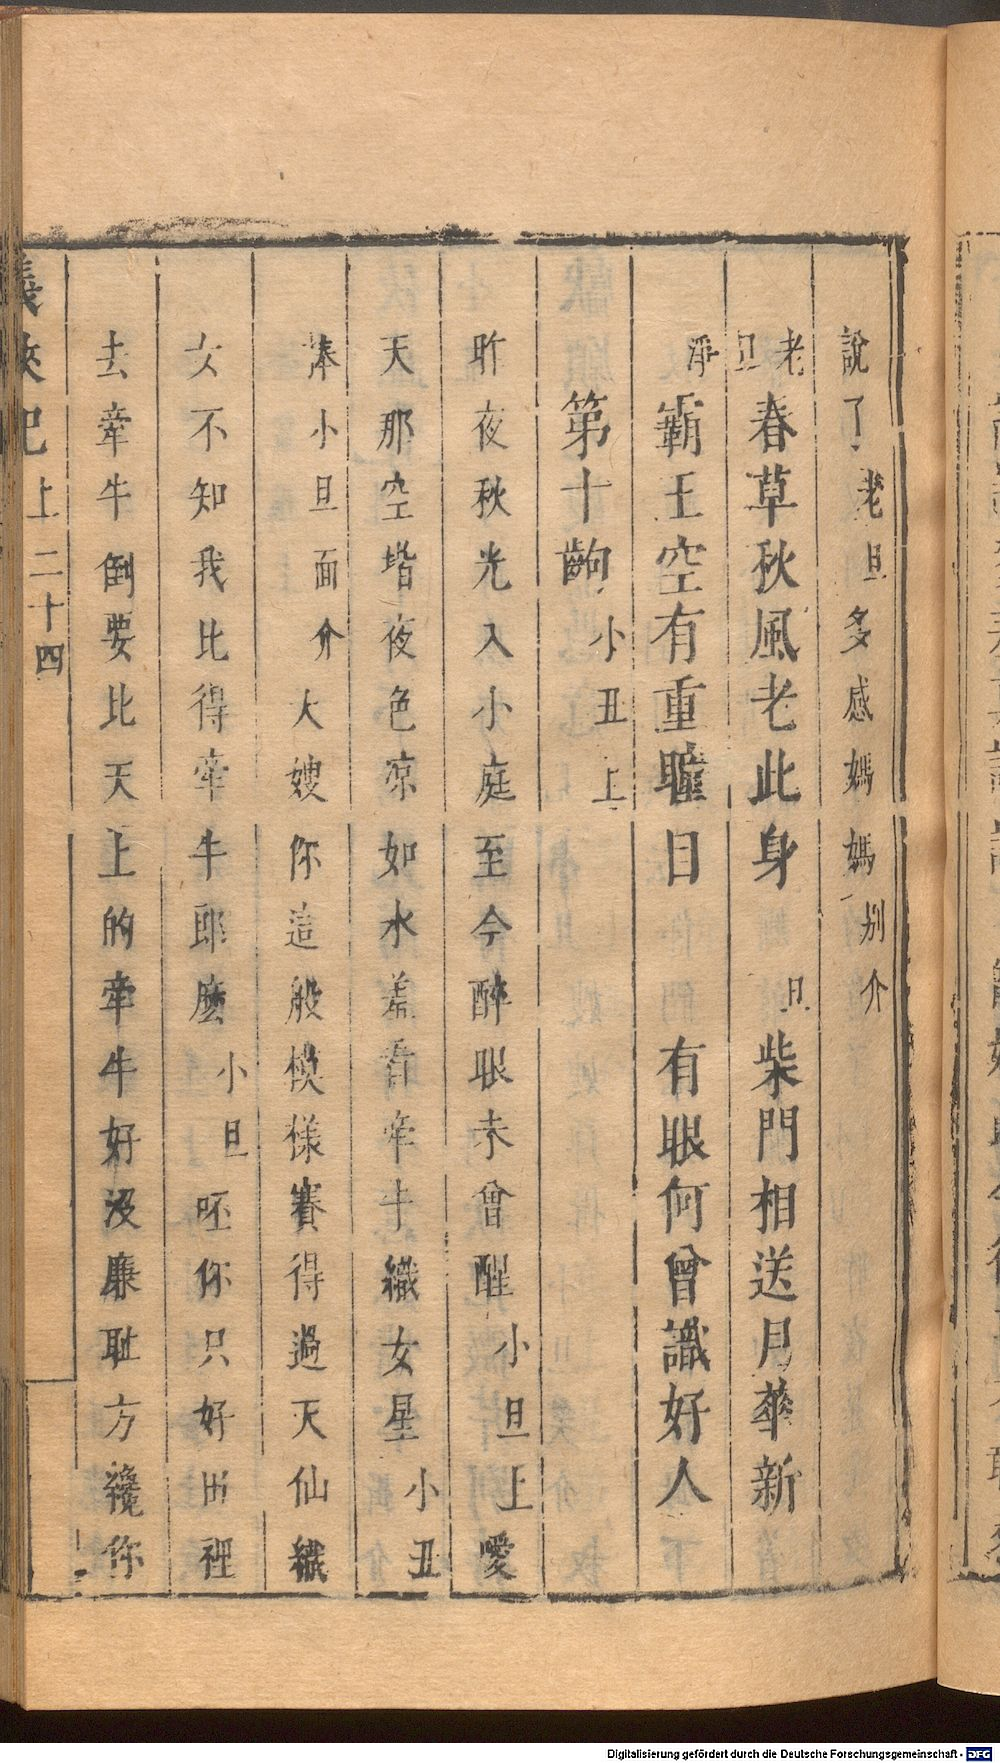 說了老旦多感媽媽别介
老旦春草秋風老此身 旦柴門相送月華新
淨霸王空有重瞳目 有眼何曾識好人
第十齣 小丑上
昨夜秋光入小庭至今醉眼未曾醒小旦上噯
天那空堦夜色凉如水羞看牽牛織女星小丑
捧小旦面介大嫂你這般模樣賽得過天仙織
女不知我比得牽牛郎麽 小旦呸你只好田裡
去牽牛倒要比天上的牽牛好没廉耻方纔你
義俠記 上 二十四
Digitalisierung gefördert durch die Deutsche Forschungsgemeinschaft - DFG